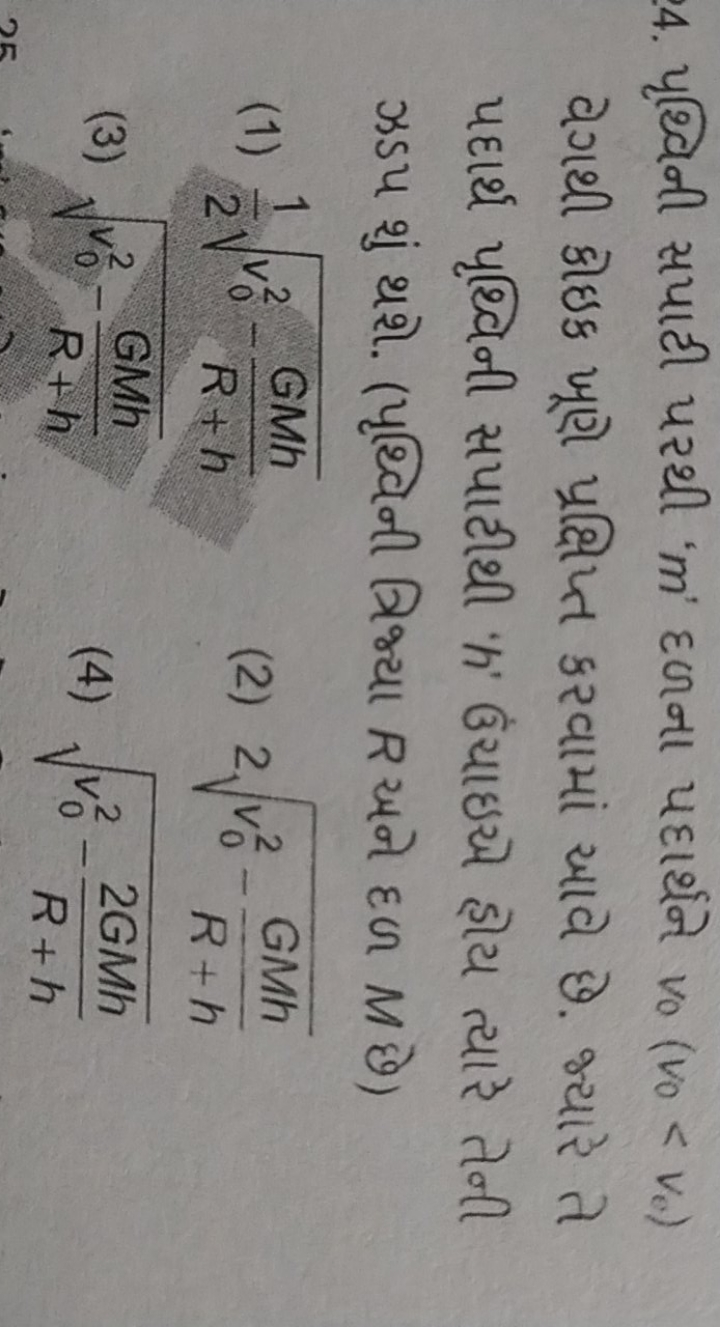 24. પૃથ્વિની સપાટી પરથી 'm' દળના પદાર્થને v₀ (v₀ < vₑ)
વેગથી કોઇક ખૂણે પ્રક્ષિપ્ત કરવામાં આવે છે. જ્યારે તે
પદાર્થ પૃથ્વિની સપાટીથી 'h' ઉંચાઇએ હોય ત્યારે તેની
ઝડપ શું થશે. (પૃથ્વિની ત્રિજ્યા R અને દળ M છે)
(1) \frac{1}{2}\sqrt{v_0^2 - \frac{GMh}{R+h}} (2) 2\sqrt{v_0^2 - \frac{GMh}{R+h}}
(3) \sqrt{v_0^2 - \frac{GMh}{R+h}} (4) \sqrt{v_0^2 - \frac{2GMh}{R+h}}
25